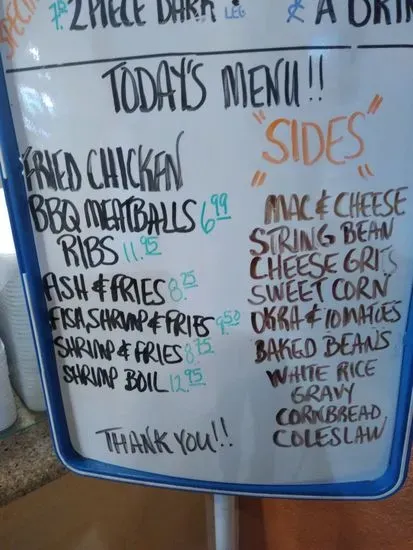 2 PIECE DARK LEG & A DRIN
TODAY'S MENU!!
FRIED CHICKEN
BBQ MEATBALLS 6.99
RIBS 11.95
FISH & FRIES 8.25
FISH, SHRIMP & FRIES 9.50
SHRIMP & FRIES 8.75
SHRIMP BOIL 12.95
THANK YOU!!
"SIDES"
MAC & CHEESE
STRING BEAN
CHEESE GRITS
SWEET CORN
OKRA & TOMATOES
BAKED BEANS
WHITE RICE
GRAVY
CORNBREAD
COLESLAW